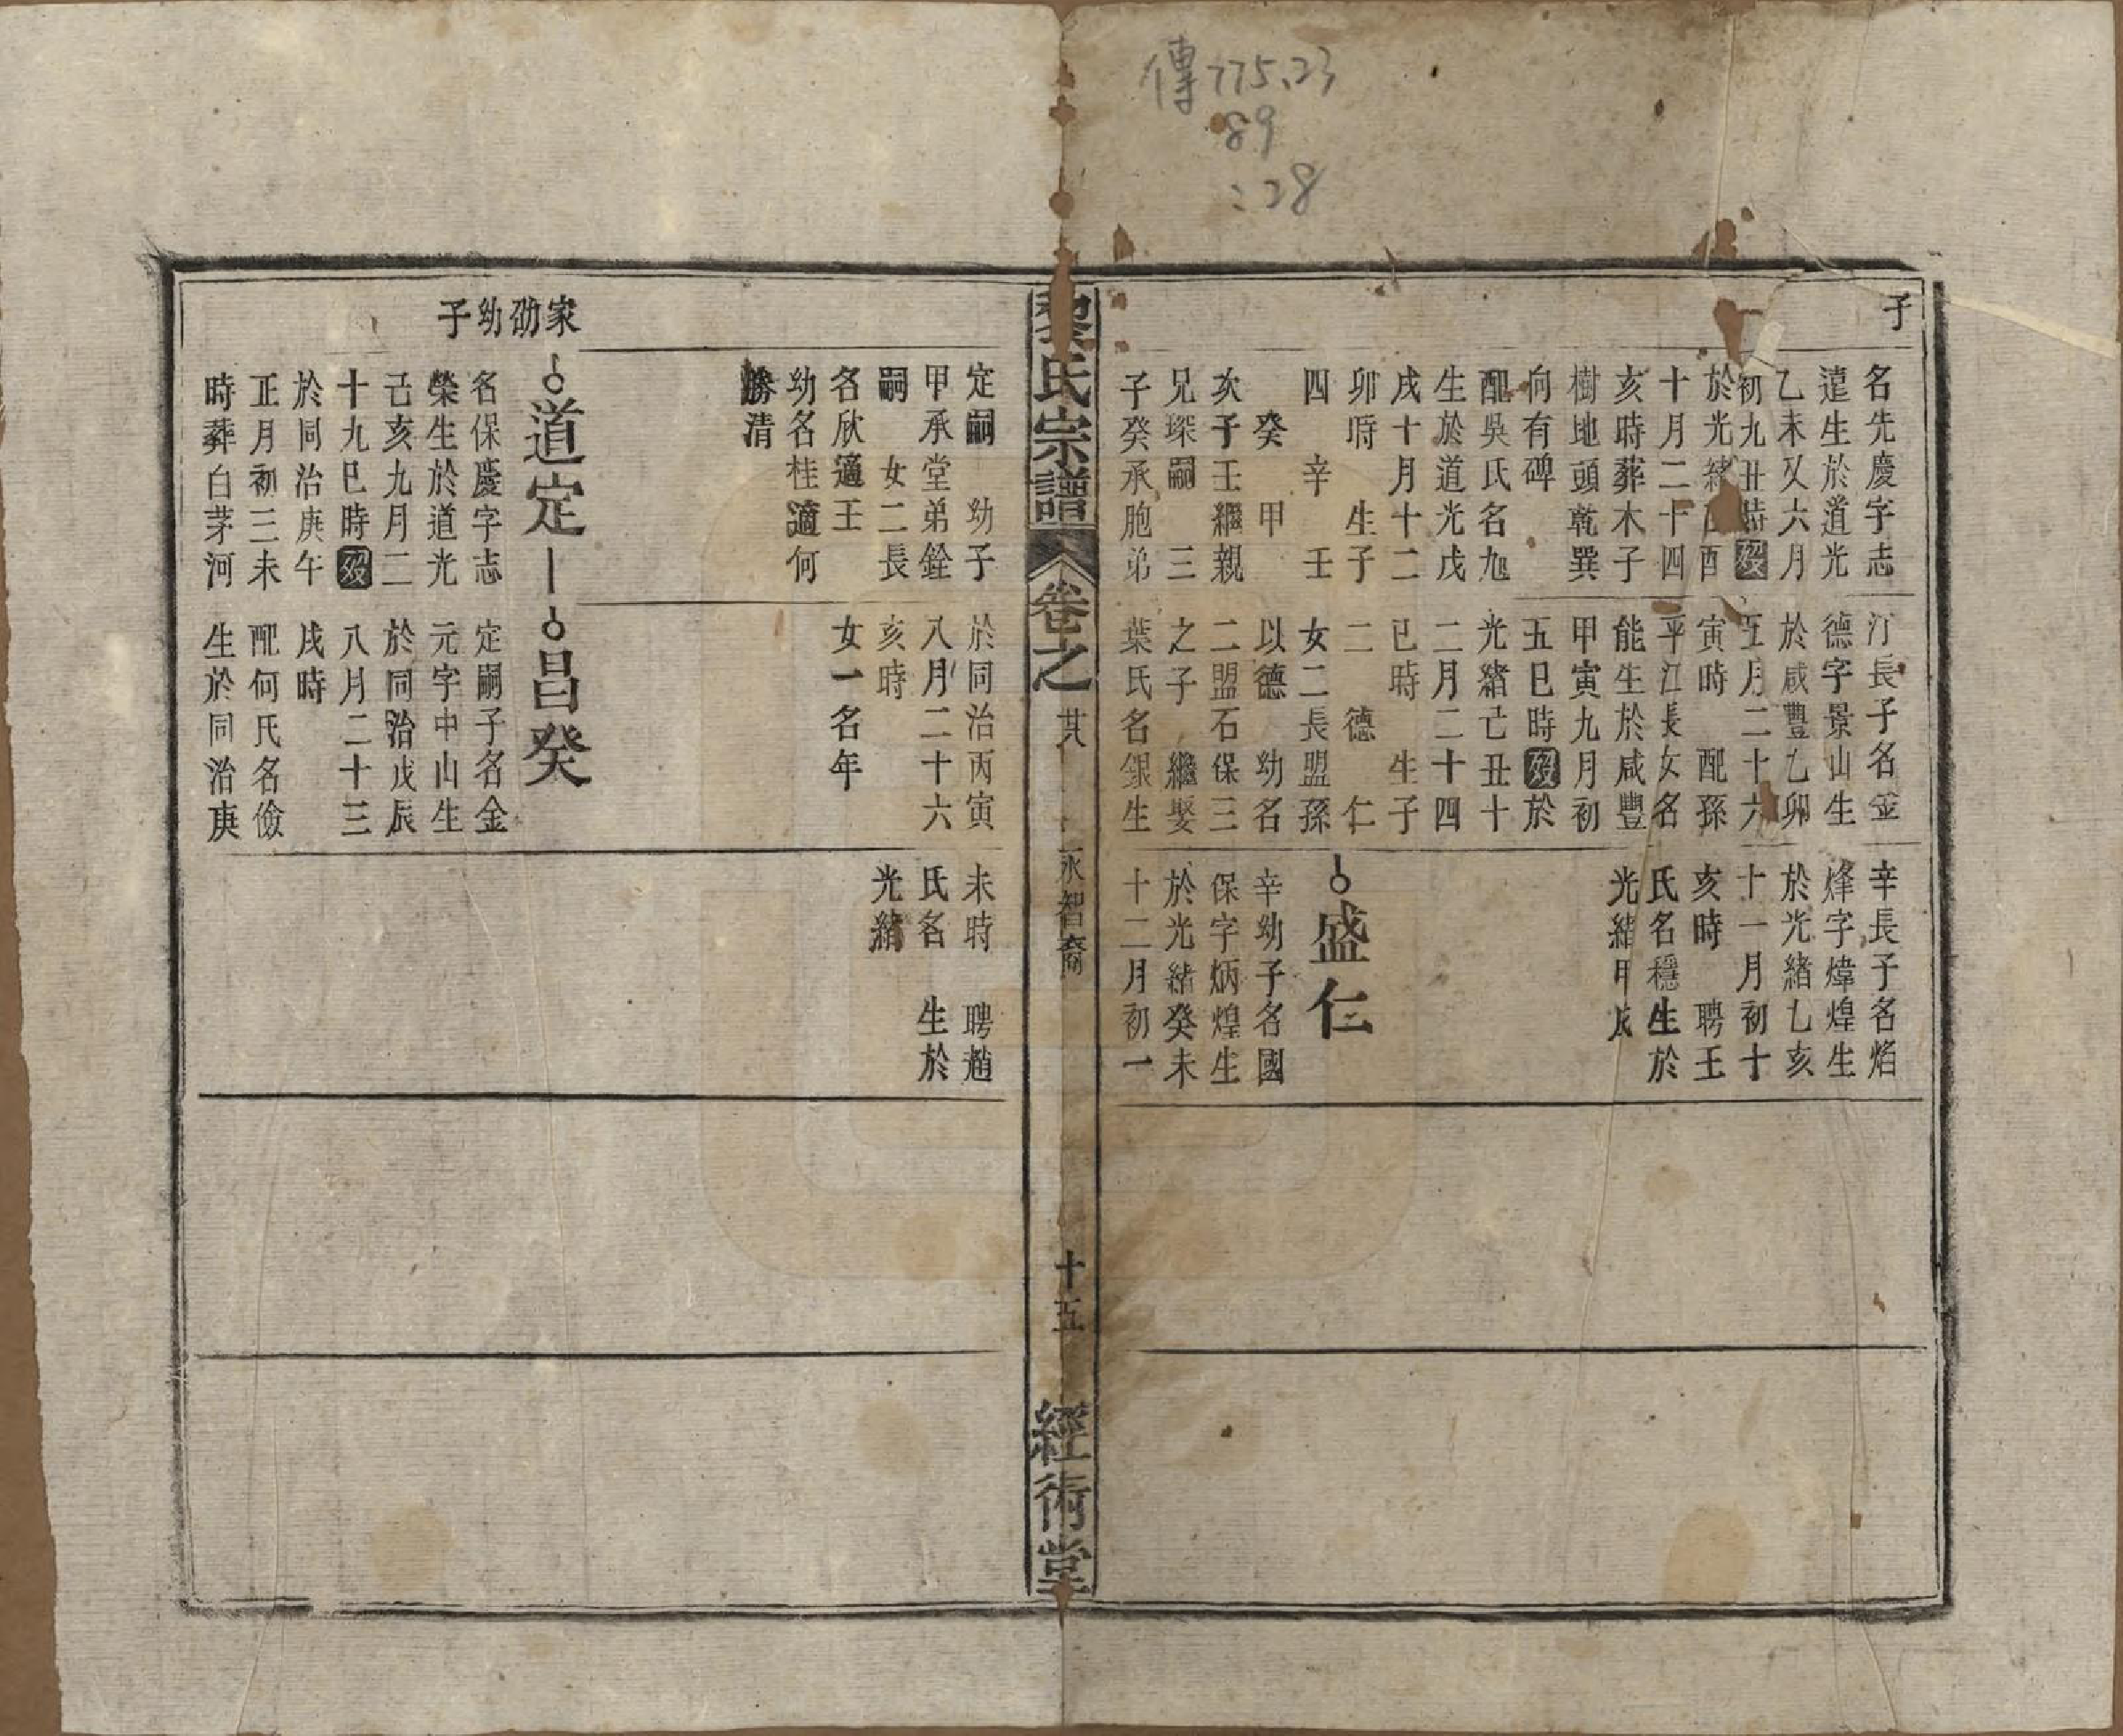 傳775.23
89
:28
子
名先慶字志
遠生於道光
乙未又六月
初九丑時歿
於光緒酉
十月二十四
亥時葬木子
樹地頭乾巽
向有碑
配吳氏名旭
生於道光戊
戌十月十二
卯時 生子
四 辛 壬
癸 甲
次子壬繼親
兄琛嗣 三
子癸承胞弟
汀長子名金
德字景山生
於咸豐乙卯
五月二十六
寅時 配孫
平江長女名
能生於咸豐
甲寅九月初
五巳時歿於
光緒己丑十
二月二十四
巳時 生子
二 德 仁
女二長盟孫
以德 幼名
二盟石保三
之子 繼娶
葉氏名銀生
辛長子名焰
烽字煒煌生
於光緒乙亥
十一月初十
亥時 聘王
氏名穩生於
光緒甲戌
盛仁
辛幼子名國
保字炳煌生
於光緒癸未
十二月初一
黎氏宗譜
卷之
其
永智裔
十五
經術堂
定嗣 幼子
甲承堂弟銓
嗣 女二長
名欣適王
幼名桂適何
勝清
於同治丙寅
八月二十六
亥時
女一名年
未時 聘趙
氏名 生於
光緒
家劭幼子
道定
名保慶字志
榮生於道光
己亥九月二
十九巳時歿
於同治庚午
正月初三未
時葬白茅河
昌癸
定嗣子名金
元字中山生
於同治戊辰
八月二十三
戌時
配何氏名儉
生於同治庚